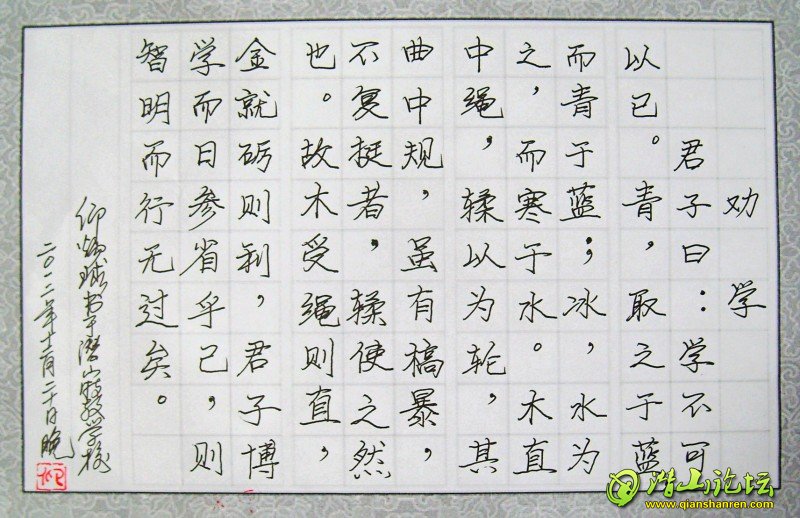 劝学
君子曰：学不可
以已。青，取之于蓝
而青于蓝；冰，水为
之，而寒于水。木直
中绳，𫐓以为轮，其
曲中规，虽有槁暴，
不复挺者，𫐓使之然
也。故木受绳则直，
金就砺则利，君子博
学而日参省乎己，则
智明而行无过矣。
仰球书于潜山特教学校
二〇一二年月二十日晚
潜山论坛
www.qianshanren.com